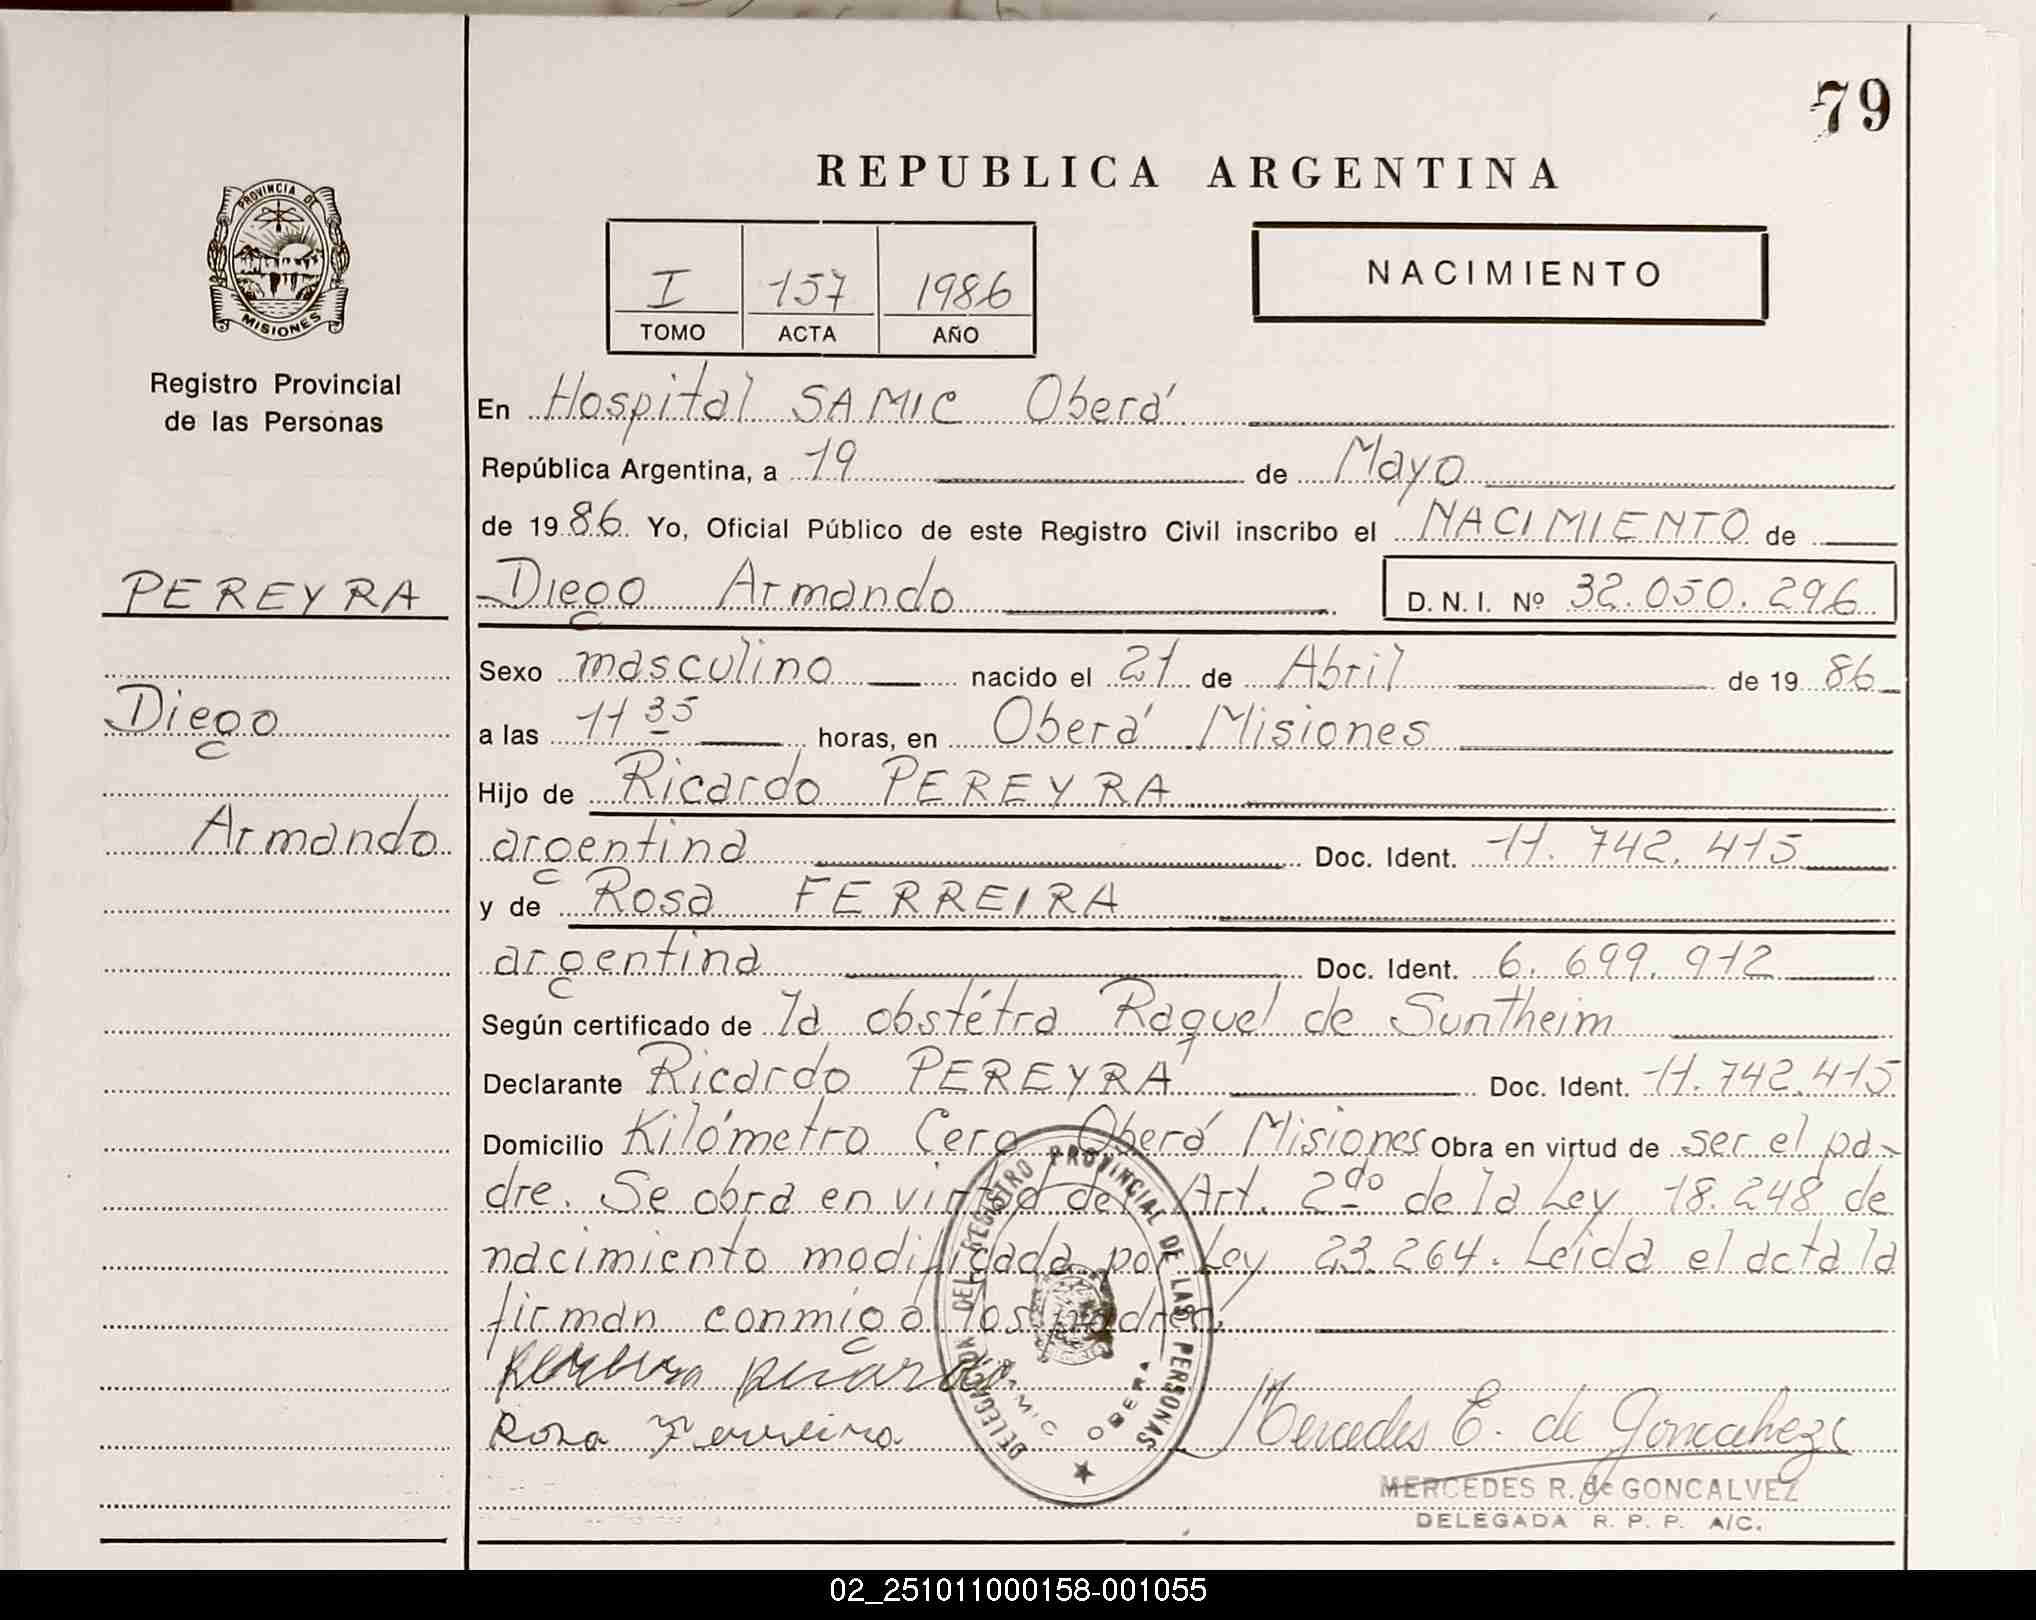 79
REPUBLICA ARGENTINA
PROVINCIA DE
MISIONES
Registro Provincial
de las Personas
I 157 1986
TOMO ACTA AÑO
NACIMIENTO
En Hospital SAMIC Oberá
República Argentina, a 19 de Mayo
de 1986 Yo, Oficial Público de este Registro Civil inscribo el NACIMIENTO de
PEREYRA
Diego Armando D. N. I. Nº 32.050.296
Sexo masculino nacido el 21 de Abril de 1986
Diego
a las 11 35 horas, en Oberá Misiones
Hijo de Ricardo PEREYRA
Armando
argentina Doc. Ident. 11.742.415
y de Rosa FERREIRA
argentina Doc. Ident. 6.699.912
Según certificado de la obstétra Raquel de Suntheim
Declarante Ricardo PEREYRA Doc. Ident. 11.742.415
Domicilio Kilómetro Cero Oberá Misiones Obra en virtud de ser el pa-
dre. Se obra en virtud del Art. 2do de la Ley 18.248 de
nacimiento modificada por Ley 23.264. Leída el acta la
firman conmigo los padres.
Pereyra Ricardo
Rosa Ferreira
DELEGADA DEL REGISTRO PROVINCIAL DE LAS PERSONAS
SAMIC OBERA
Mercedes E. de Goncalvez
MERCEDES R. de GONCALVEZ
DELEGADA R. P. P. A/C.
02_251011000158-001055